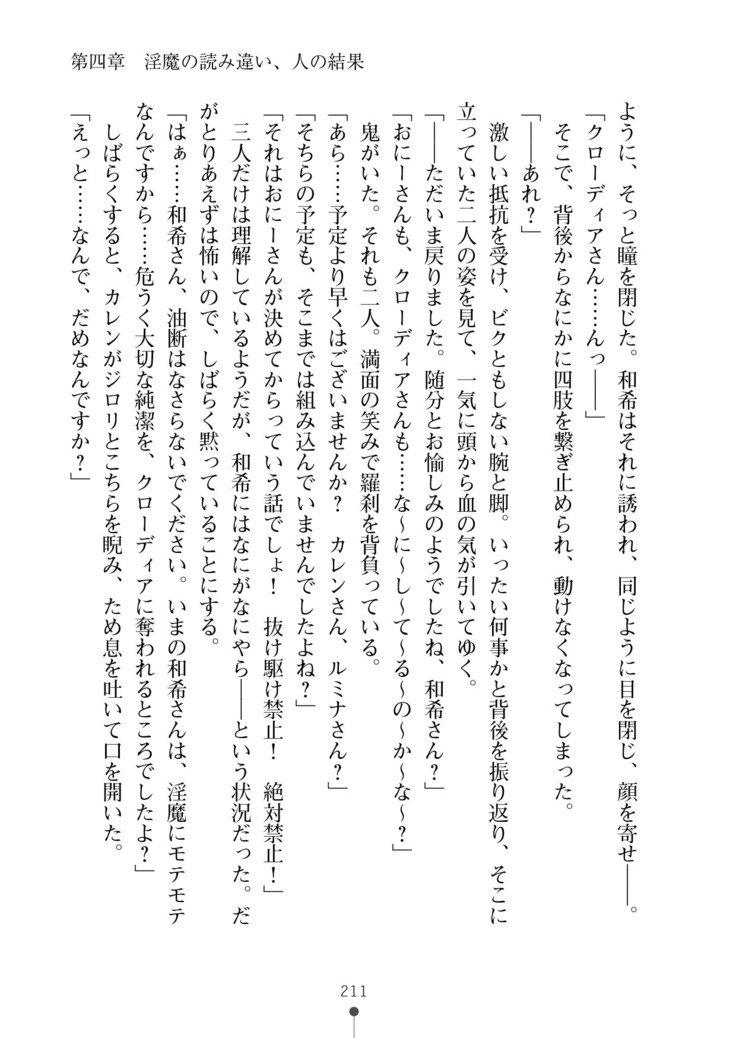 第四章　淫魔の読み違い、人の結果
ように、そっと瞳を閉じた。和希はそれに誘われ、同じように目を閉じ、顔を寄せ――。
「クローディアさん……んっ――」
　そこで、背後からなにかに四肢を繋ぎ止められ、動けなくなってしまった。
「――あれ？」
　激しい抵抗を受け、ビクともしない腕と脚。いったい何事かと背後を振り返り、そこに
立っていた二人の姿を見て、一気に頭から血の気が引いてゆく。
「――ただいま戻りました。随分とお愉しみのようでしたね、和希さん？」
「おにーさんも、クローディアさんも……な～に～し～て～る～の～か～な～？」
　鬼がいた。それも二人。満面の笑みで羅刹を背負っている。
「あら……予定より早くはございませんか？　カレンさん、ルミナさん？」
「そちらの予定も、そこまでは組み込んでいませんでしたよね？」
「それはおにーさんが決めてからっていう話でしょ！　抜け駆け禁止！　絶対禁止！」
　三人だけは理解しているようだが、和希にはなにがなにやら――という状況だった。だ
がとりあえずは怖いので、しばらく黙っていることにする。
「はぁ……和希さん、油断はなさらないでください。いまの和希さんは、淫魔にモテモテ
なんですから……危うく大切な純潔を、クローディアに奪われるところでしたよ？」
　しばらくすると、カレンがジロリとこちらを睨み、ため息を吐いて口を開いた。
「えっと……なんで、だめなんですか？」
211